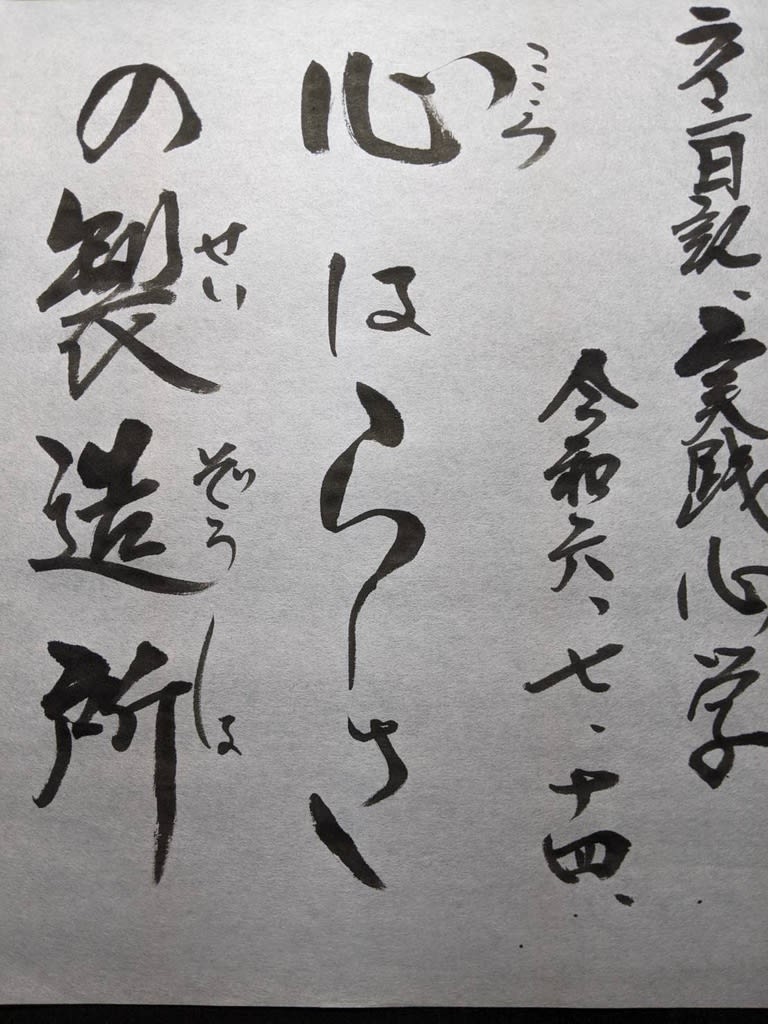 日記、実践心学
令和六、七、十四、
こころ
心はらしさ
せいぞうしよ
の製造所